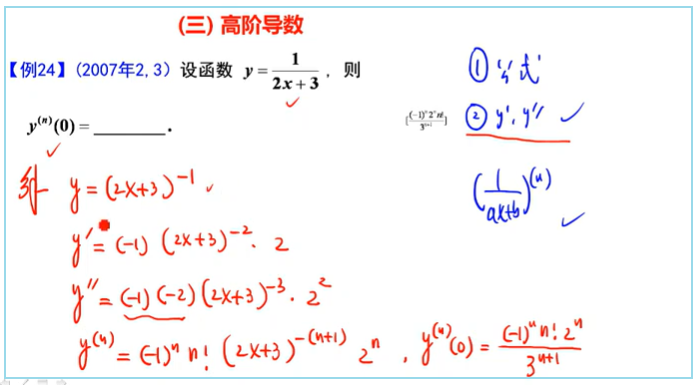 (三) 高阶导数
【例24】(2007年2, 3) 设函数 y = 1/(2x+3) , 则
y⁽ⁿ⁾(0) = ________ .
[(-1)ⁿ2ⁿn!/3ⁿ⁺¹]
① 公式
② y', y''
(1/(ax+b))⁽ⁿ⁾
解 y = (2x+3)⁻¹
y' = (-1) (2x+3)⁻² · 2
y'' = (-1)(-2)(2x+3)⁻³ · 2²
y⁽ⁿ⁾ = (-1)ⁿ n! (2x+3)⁻⁽ⁿ⁺¹⁾ 2ⁿ , y⁽ⁿ⁾(0) = (-1)ⁿ n! 2ⁿ/3ⁿ⁺¹